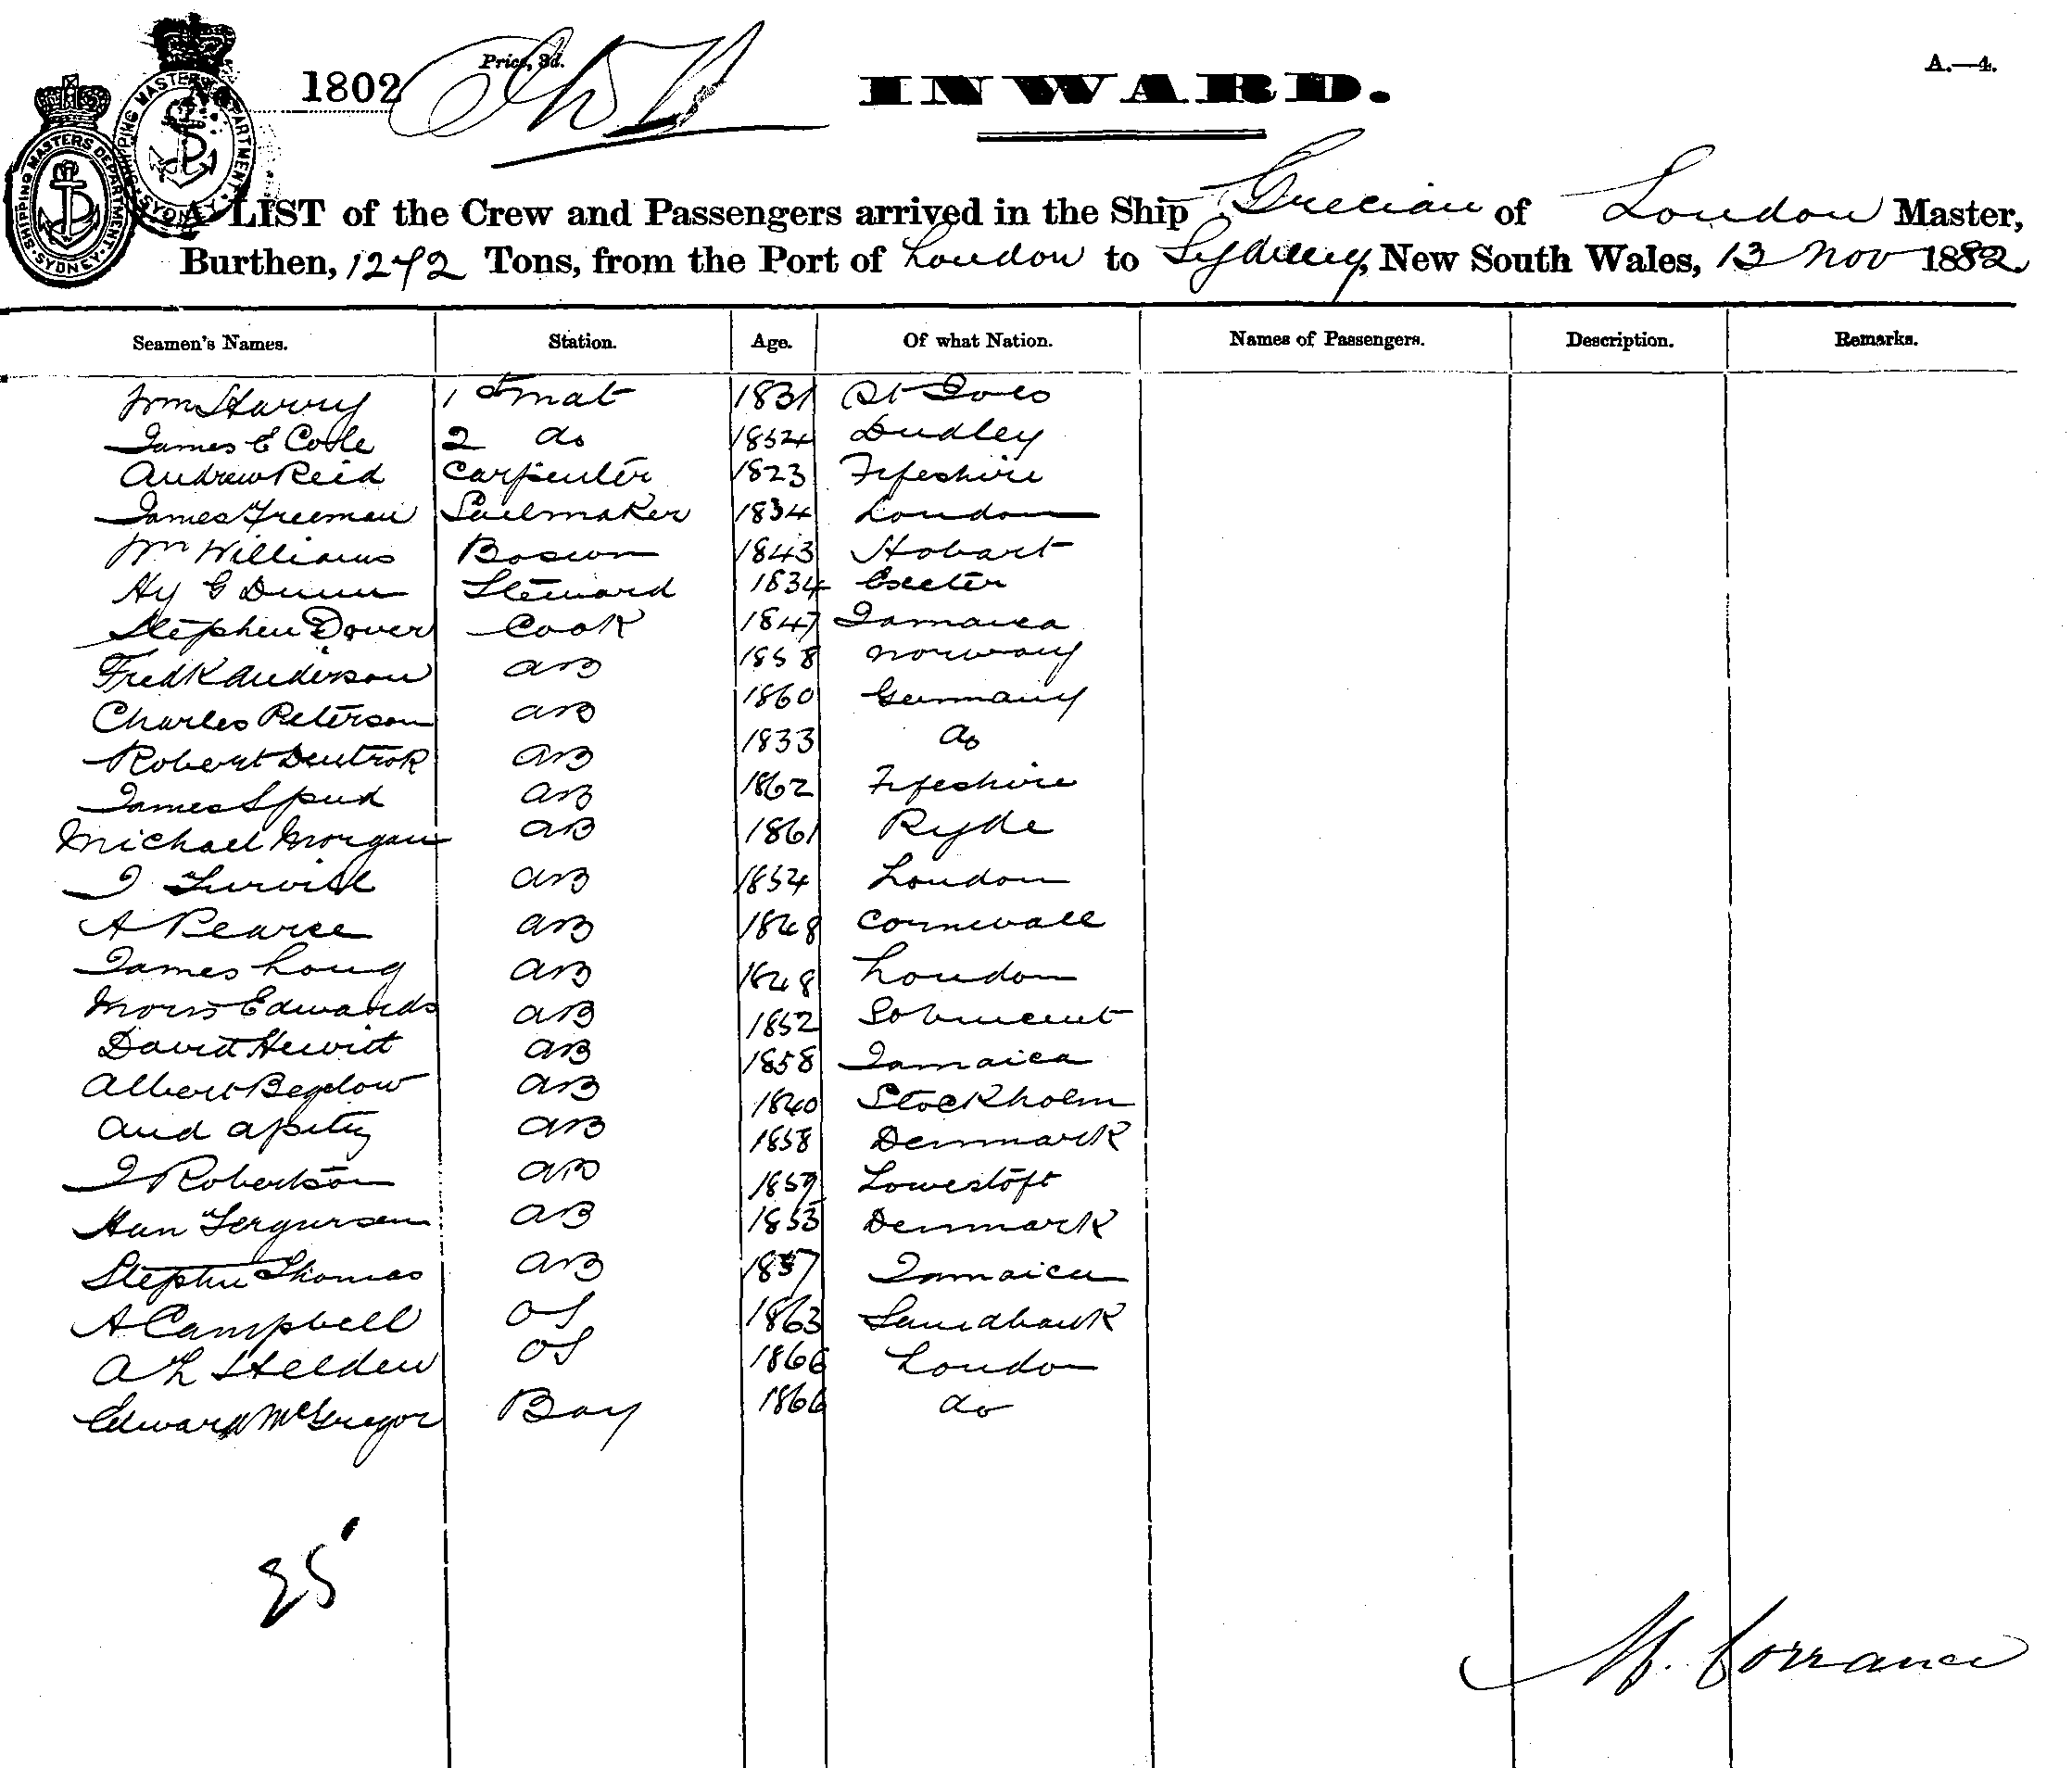 No. 1802
Price, 3d.
INWARD.
A.—4.
SHIPPING MASTERS DEPARTMENT SYDNEY
SHIPPING MASTERS DEPARTMENT SYDNEY
A LIST of the Crew and Passengers arrived in the Ship Grecian of London Master,
Burthen, 1272 Tons, from the Port of London to Sydney, New South Wales, 13 Nov 1882
Seamen's Names. Station. Age. Of what Nation. Names of Passengers. Description. Remarks.
Wm Harvy 1st mat 1831 St Ives
James E Cole 2 do 1854 Dudley
Andrew Reid Carpenter 1823 Fifeshire
James Freeman Sailmaker 1834 London
Wm Williams Bosun 1843 Hobart
Hy G Dunn Steward 1834 Exeter
Stephen Dover Cook 1847 Jamaica
Fredk Anderson AB 1858 Norway
Charles Peterson AB 1860 Germany
Robert AB 1833 do
James Spud AB 1862 Fifeshire
Michael Morgan AB 1861 Ryde
J AB 1854 London
A Pearce AB 1848 Cornwall
James Long AB 1848 London
Morris Edwards AB 1852 St Vincent
David Hewitt AB 1858 Jamaica
Albert AB 1840 Stockholm
And AB 1858 Denmark
J Robertson AB 1859 Lowestoft
Han Fergursen AB 1853 Denmark
Stephn Thomas AB 1837 Jamaica
A Campbell OS 1863
A L Helden OS 1866 London
Edward McGregor Boy 1866 do
25